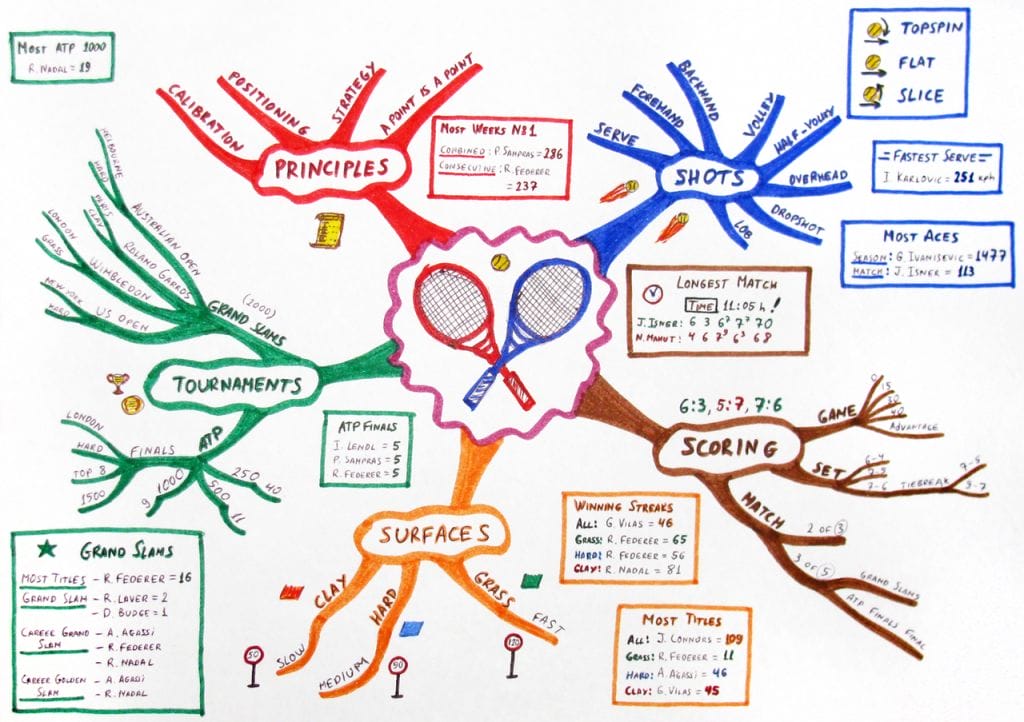 MOST ATP 1000
R. NADAL = 19
PRINCIPLES
CALIBRATION
POSITIONING
STRATEGY
A POINT IS A POINT
MOST WEEKS N81
COMBINED: P. SAMPRAS = 286
CONSECUTIVE: R. FEDERER
= 237
SHOTS
SERVE
FOREHAND
BACKHAND
VOLLEY
HALF-VOLLEY
OVERHEAD
DROPSHOT
LOB
TOPSPIN
FLAT
SLICE
=FASTEST SERVE=
I. KARLOVIC = 251 kph
MOST ACES
SEASON: G. IVANISEVIC = 1477
MATCH: J. ISNER = 113
LONGEST MATCH
TIME 11:05 h!
J. ISNER: 6 3 6⁷ 7⁷ 70
N. MAHUT: 4 6 7⁹ 6³ 68
TOURNAMENTS
GRAND SLAMS
(2000)
AUSTRALIAN OPEN
MELBOURNE
HARD
ROLAND GARROS
PARIS
CLAY
WIMBLEDON
LONDON
GRASS
US OPEN
NEW YORK
HARD
ATP
FINALS
LONDON
HARD
TOP 8
1500
1000
9
500
11
250
40
ATP FINALS
I. LENDL = 5
P. SAMPRAS = 5
R. FEDERER = 5
GRAND SLAMS
MOST TITLES - R. FEDERER = 16
GRAND SLAM - R. LAVER = 2
- D. BUDGE = 1
CAREER GRAND - A. AGASSI
SLAM - R. FEDERER
- R. NADAL
CAREER GOLDEN - A. AGASSI
SLAM - R. NADAL
SURFACES
CLAY
SLOW
50
HARD
MEDIUM
90
GRASS
FAST
120
WINNING STREAKS
ALL: G. VILAS = 46
GRASS: R. FEDERER = 65
HARD: R. FEDERER = 56
CLAY: R. NADAL = 81
MOST TITLES
ALL: J. CONNORS = 109
GRASS: R. FEDERER = 11
HARD: A. AGASSI = 46
CLAY: G. VILAS = 45
6:3, 5:7, 7:6
SCORING
GAME
0
15
30
40
ADVANTAGE
SET
6-4
7-5
7-6
TIEBREAK
7-5
9-7
MATCH
2 OF 3
3 OF 5
GRAND SLAMS
ATP FINALS FINAL